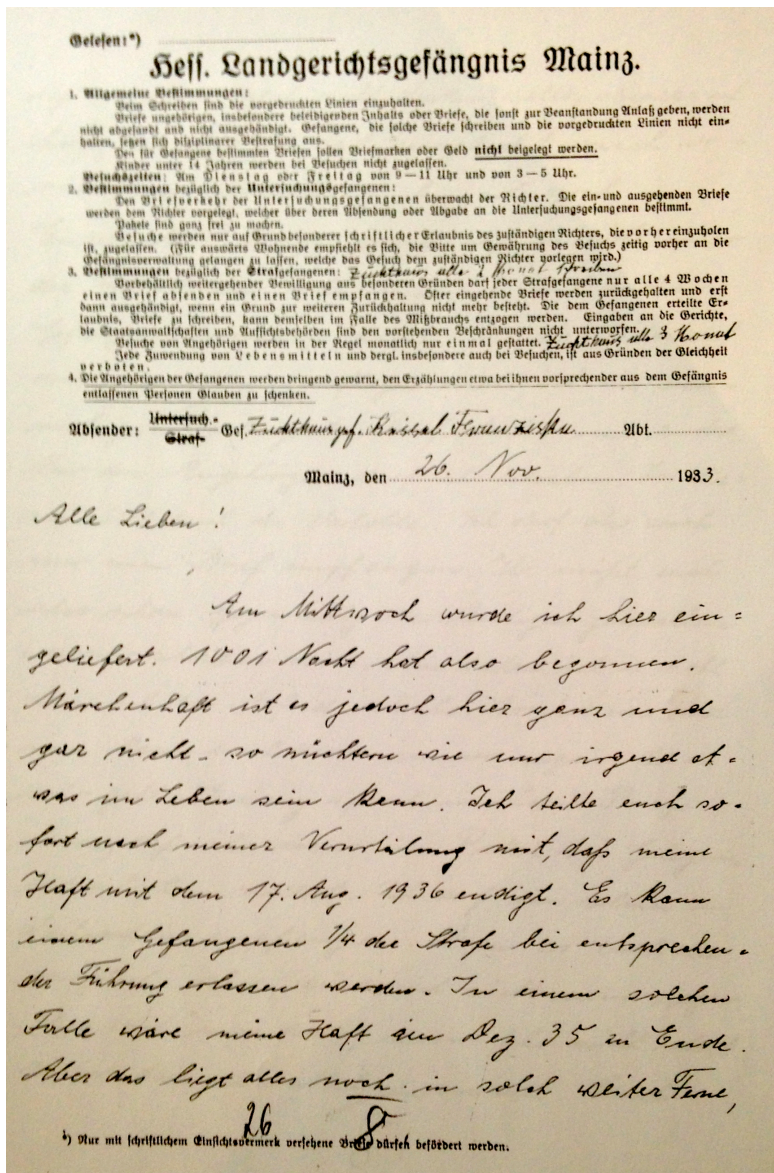 Gelesen:*)
Hess. Landgerichtsgefängnis Mainz.
1. Allgemeine Bestimmungen:
Beim Schreiben sind die vorgedruckten Linien einzuhalten.
Briefe ungehörigen, insbesondere beleidigenden Inhalts oder Briefe, die sonst zur Beanstandung Anlaß geben, werden
nicht abgesandt und nicht ausgehändigt. Gefangene, die solche Briefe schreiben und die vorgedruckten Linien nicht ein-
halten, setzen sich disziplinarer Bestrafung aus.
Den für Gefangene bestimmten Briefen sollen Briefmarken oder Geld nicht beigelegt werden.
Kinder unter 14 Jahren werden bei Besuchen nicht zugelassen.
Besuchszeiten: Am Dienstag oder Freitag von 9—11 Uhr und von 3—5 Uhr.
2. Bestimmungen bezüglich der Untersuchungsgefangenen:
Den Briefverkehr der Untersuchungsgefangenen überwacht der Richter. Die ein- und ausgehenden Briefe
werden dem Richter vorgelegt, welcher über deren Absendung oder Abgabe an die Untersuchungsgefangenen bestimmt.
Pakete sind ganz frei zu machen.
Besuche werden nur auf Grund besonderer schriftlicher Erlaubnis des zuständigen Richters, die vorher einzuholen
ist, zugelassen. (Für auswärts Wohnende empfiehlt es sich, die Bitte um Gewährung des Besuchs zeitig vorher an die
Gefängnisverwaltung gelangen zu lassen, welche das Gesuch dem zuständigen Richter vorlegen wird.)
3. Bestimmungen bezüglich der Strafgefangenen: Zuchthaus alle 2 Monat schreiben
Vorbehaltlich weitergehender Bewilligung aus besonderen Gründen darf jeder Strafgefangene nur alle 4 Wochen
einen Brief absenden und einen Brief empfangen. Öfter eingehende Briefe werden zurückgehalten und erst
dann ausgehändigt, wenn ein Grund zur weiteren Zurückhaltung nicht mehr besteht. Die dem Gefangenen erteilte Er-
laubnis, Briefe zu schreiben, kann demselben im Falle des Mißbrauchs entzogen werden. Eingaben an die Gerichte,
die Staatsanwaltschaften und Aufsichtsbehörden sind den vorstehenden Beschränkungen nicht unterworfen.
Besuche von Angehörigen werden in der Regel monatlich nur einmal gestattet. Zuchthaus alle 3 Monat
Jede Zuwendung von Lebensmitteln und dergl. insbesondere auch bei Besuchen, ist aus Gründen der Gleichheit
verboten.
4. Die Angehörigen der Gefangenen werden dringend gewarnt, den Erzählungen etwa bei ihnen vorsprechender aus dem Gefängnis
entlassenen Personen Glauben zu schenken.
Absender: Untersuch.- Straf- Gef. Zuchthausgf. Kessel Franziska Abt.
Mainz, den 26. Nov. 1933.
Alle Lieben!
Am Mittwoch wurde ich hier ein=
geliefert. 1001 Nacht hat also begonnen.
Märchenhaft ist es jedoch hier ganz und
gar nicht - so nüchtern wie nur irgend et=
was im Leben sein kann. Ich teilte euch so=
fort nach meiner Verurteilung mit, daß meine
Haft mit dem 17. Aug. 1936 endigt. Es kann
einem Gefangenen 1/4 der Strafe bei entsprechen=
der Führung erlassen werden. In einem solchen
Falle wäre meine Haft im Dez. 35 zu Ende.
Aber das liegt alles noch in solch weiter Ferne,
26 8
*) Nur mit schriftlichem Einsichtsvermerk versehene Briefe dürfen befördert werden.